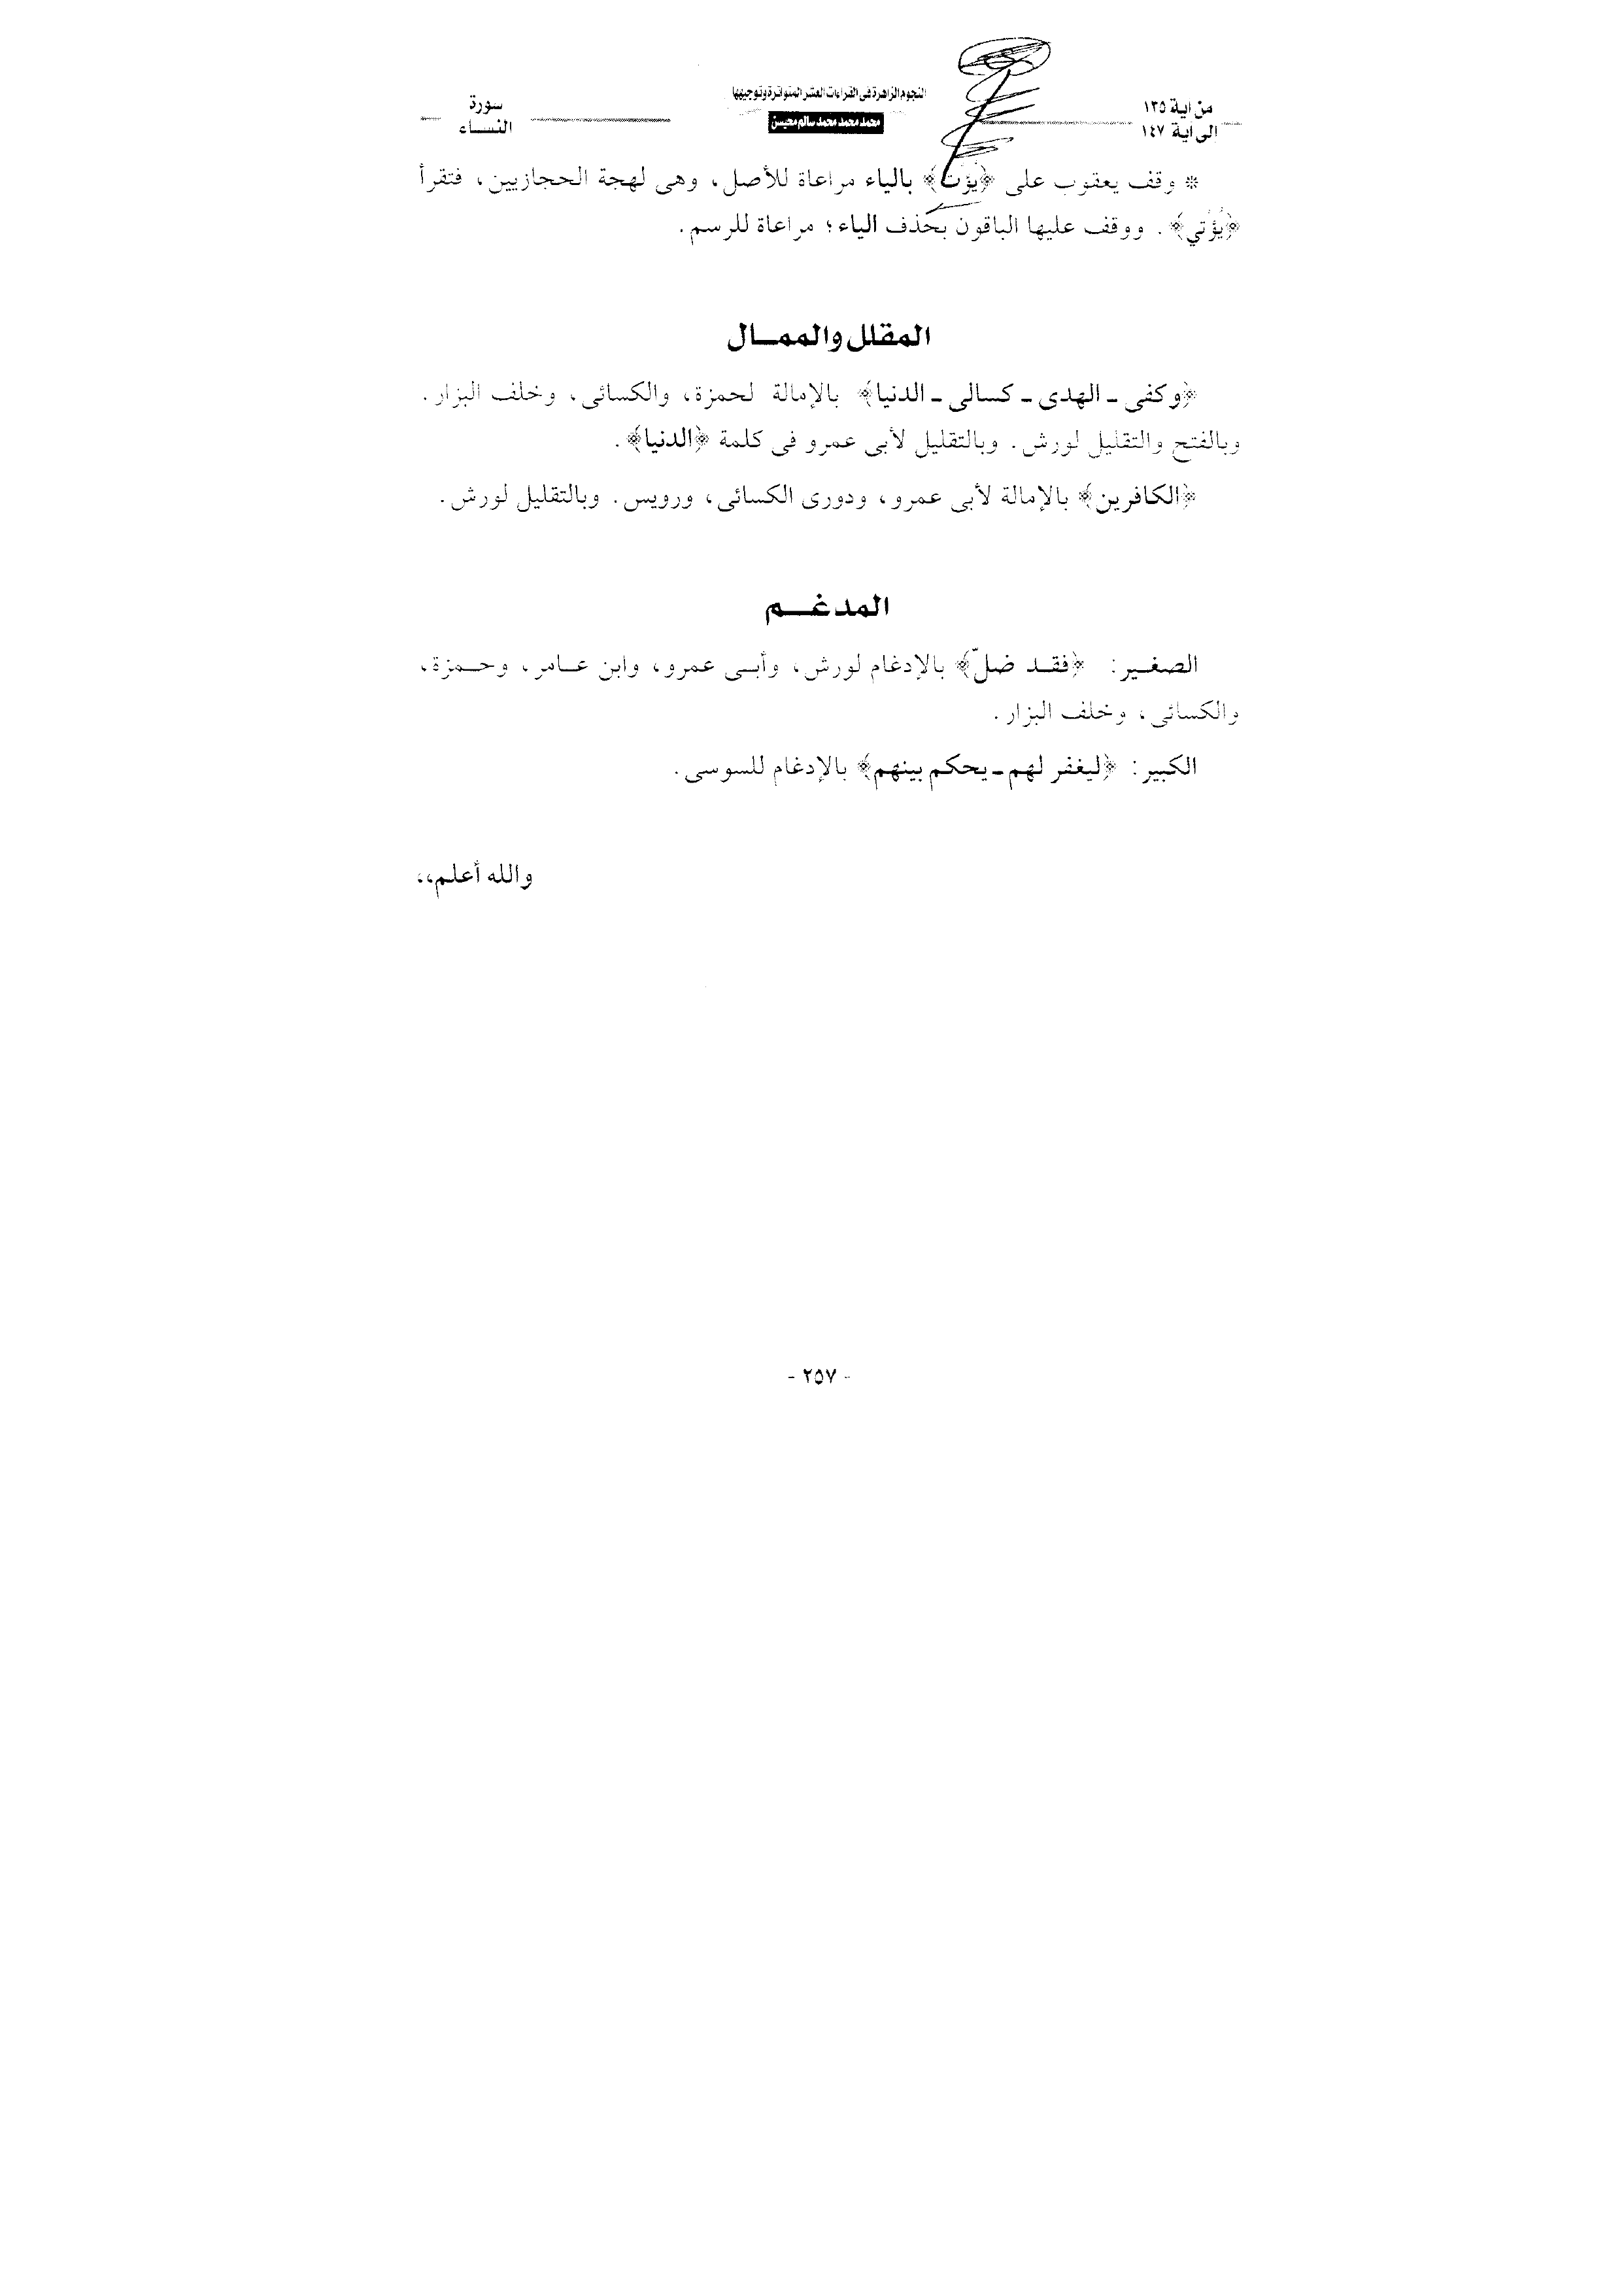 من آية ١٣٥
إلى آية ١٤٧
النجوم الزاهرة فى القراءات العشر المتواترة وتوجيهها
محمد محمد محمد سالم محيسن
سورة
النساء
* وقف يعقوب على ﴿يؤت﴾ بالياء مراعاة للأصل، وهى لهجة الحجازيين، فتقرأ
﴿يُؤْتي﴾. ووقف عليها الباقون بحذف الياء؛ مراعاة للرسم.
المقلل والممال
﴿وكفى ـ الهدى ـ كسالى ـ الدنيا﴾ بالإمالة لحمزة، والكسائى، وخلف البزار.
وبالفتح والتقليل لورش. وبالتقليل لأبى عمرو فى كلمة ﴿الدنيا﴾.
﴿الكافرين﴾ بالإمالة لأبى عمرو، ودورى الكسائى، ورويس. وبالتقليل لورش.
المدغم
الصغير: ﴿فقد ضلّ﴾ بالإدغام لورش، وأبى عمرو، وابن عامر، وحمزة،
والكسائى، وخلف البزار.
الكبير: ﴿ليغفر لهم ـ يحكم بينهم﴾ بالإدغام للسوسى.
والله أعلم،،
- ٢٥٧ -